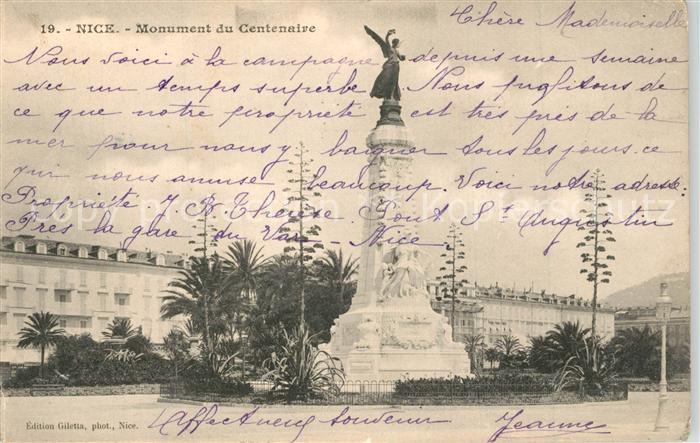 19. - NICE. - Monument du Centenaire
Chère Mademoiselle
Nous voici à la campagne depuis une semaine
avec un temps superbe. Nous profitons de
ce que notre propriété est très près de la
mer pour nous y baigner tous les jours. ce
qui nous amuse beaucoup. Voici notre adresse.
Propriété J. B. Thérèse Pont St Augustin
Près la gare du Var - Nice
Affectueux souvenir Jeanne
Édition Giletta, phot., Nice.